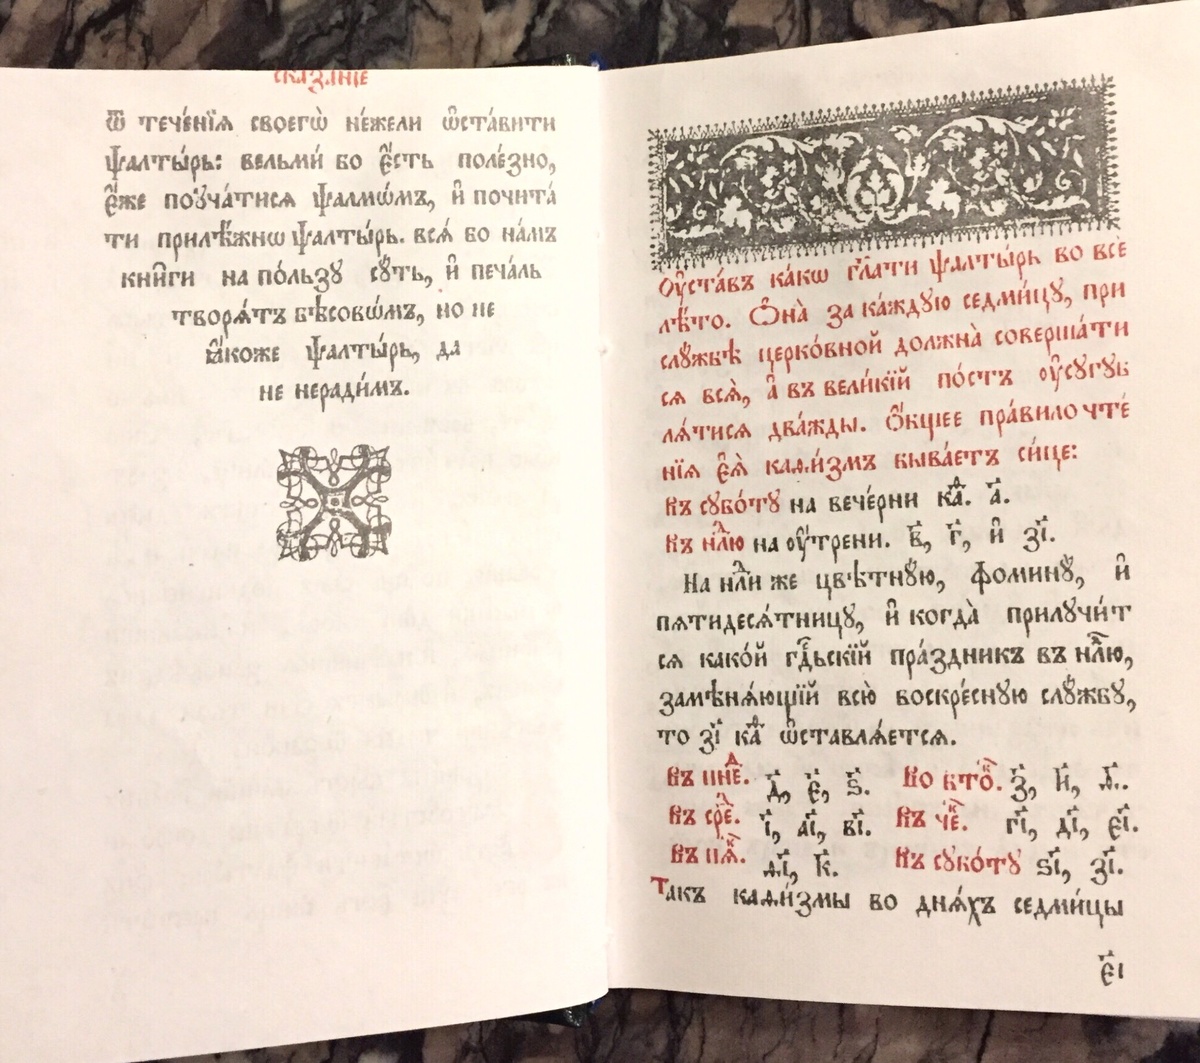 сказа́нїе
ѿ тече́нїѧ своегѡ̀ не́жели ѡ҆ста́вити
ѱалты́рь: вельмѝ бо є҆́сть поле́зно,
є҆́же поꙋча́тисѧ ѱалмѡ́мъ, и҆ почита́
ти прилѣ́жнѡ ѱалты́рь. всѧ́ бо на́мъ
кни̑ги на по́льзꙋ сꙋ́ть, и҆ печа́ль
творѧ́тъ бѣсовѡ́мъ, но не
ꙗ҆́коже ѱалты́рь, да
не неради́мъ.
Оу҆ста́въ ка́кѡ гл҃ати ѱалты́рь во все
лѣ́то. Ѻ҆на̀ за ка́ждꙋю седми́цꙋ, при
слꙋ́жбѣ церко́вной должна̀ соверша́ти
сѧ всѧ̀, а҆ въ вели́кїй по́стъ оу҆сꙋгꙋб
лѧ́тисѧ два́жды. Ѻ҆́бщее пра́вило чте́
нїѧ є҆ѧ̀ каѳи́змъ быва́етъ си́це:
Въ сꙋбѡ́тꙋ на вече́рни каѳ. а҃.
Въ нлⷣю на оу҆́трени. в҃, г҃, и҆ з҃і.
На нлⷣи же цвѣ́тнꙋю, ѳоминꙋ̀, и҆
пѧтидесѧ́тницꙋ, и҆ когда̀ прилꙋчи́т
сѧ како́й гдⷭ҇ьскїй пра́здникъ въ нлⷣю,
замѣнѧ́ющїй всю̀ воскре́снꙋю слꙋ́жбꙋ,
то з҃і каѳ ѡ҆ставлѧ́етсѧ.
Въ пнеⷣ. д҃, є҃, ѕ҃. Во втоⷬ. з҃, и҃, ѳ҃.
Въ среⷣ. і҃, а҃і, в҃і. Въ чеⷦ. г҃і, д҃і, є҃і.
Въ пѧⷦ. ѳ҃і, к҃. Въ сꙋбѡ́тꙋ ѕ҃і, з҃і.
Такъ каѳи́змы во днѧ́хъ седми́цы
є҃і